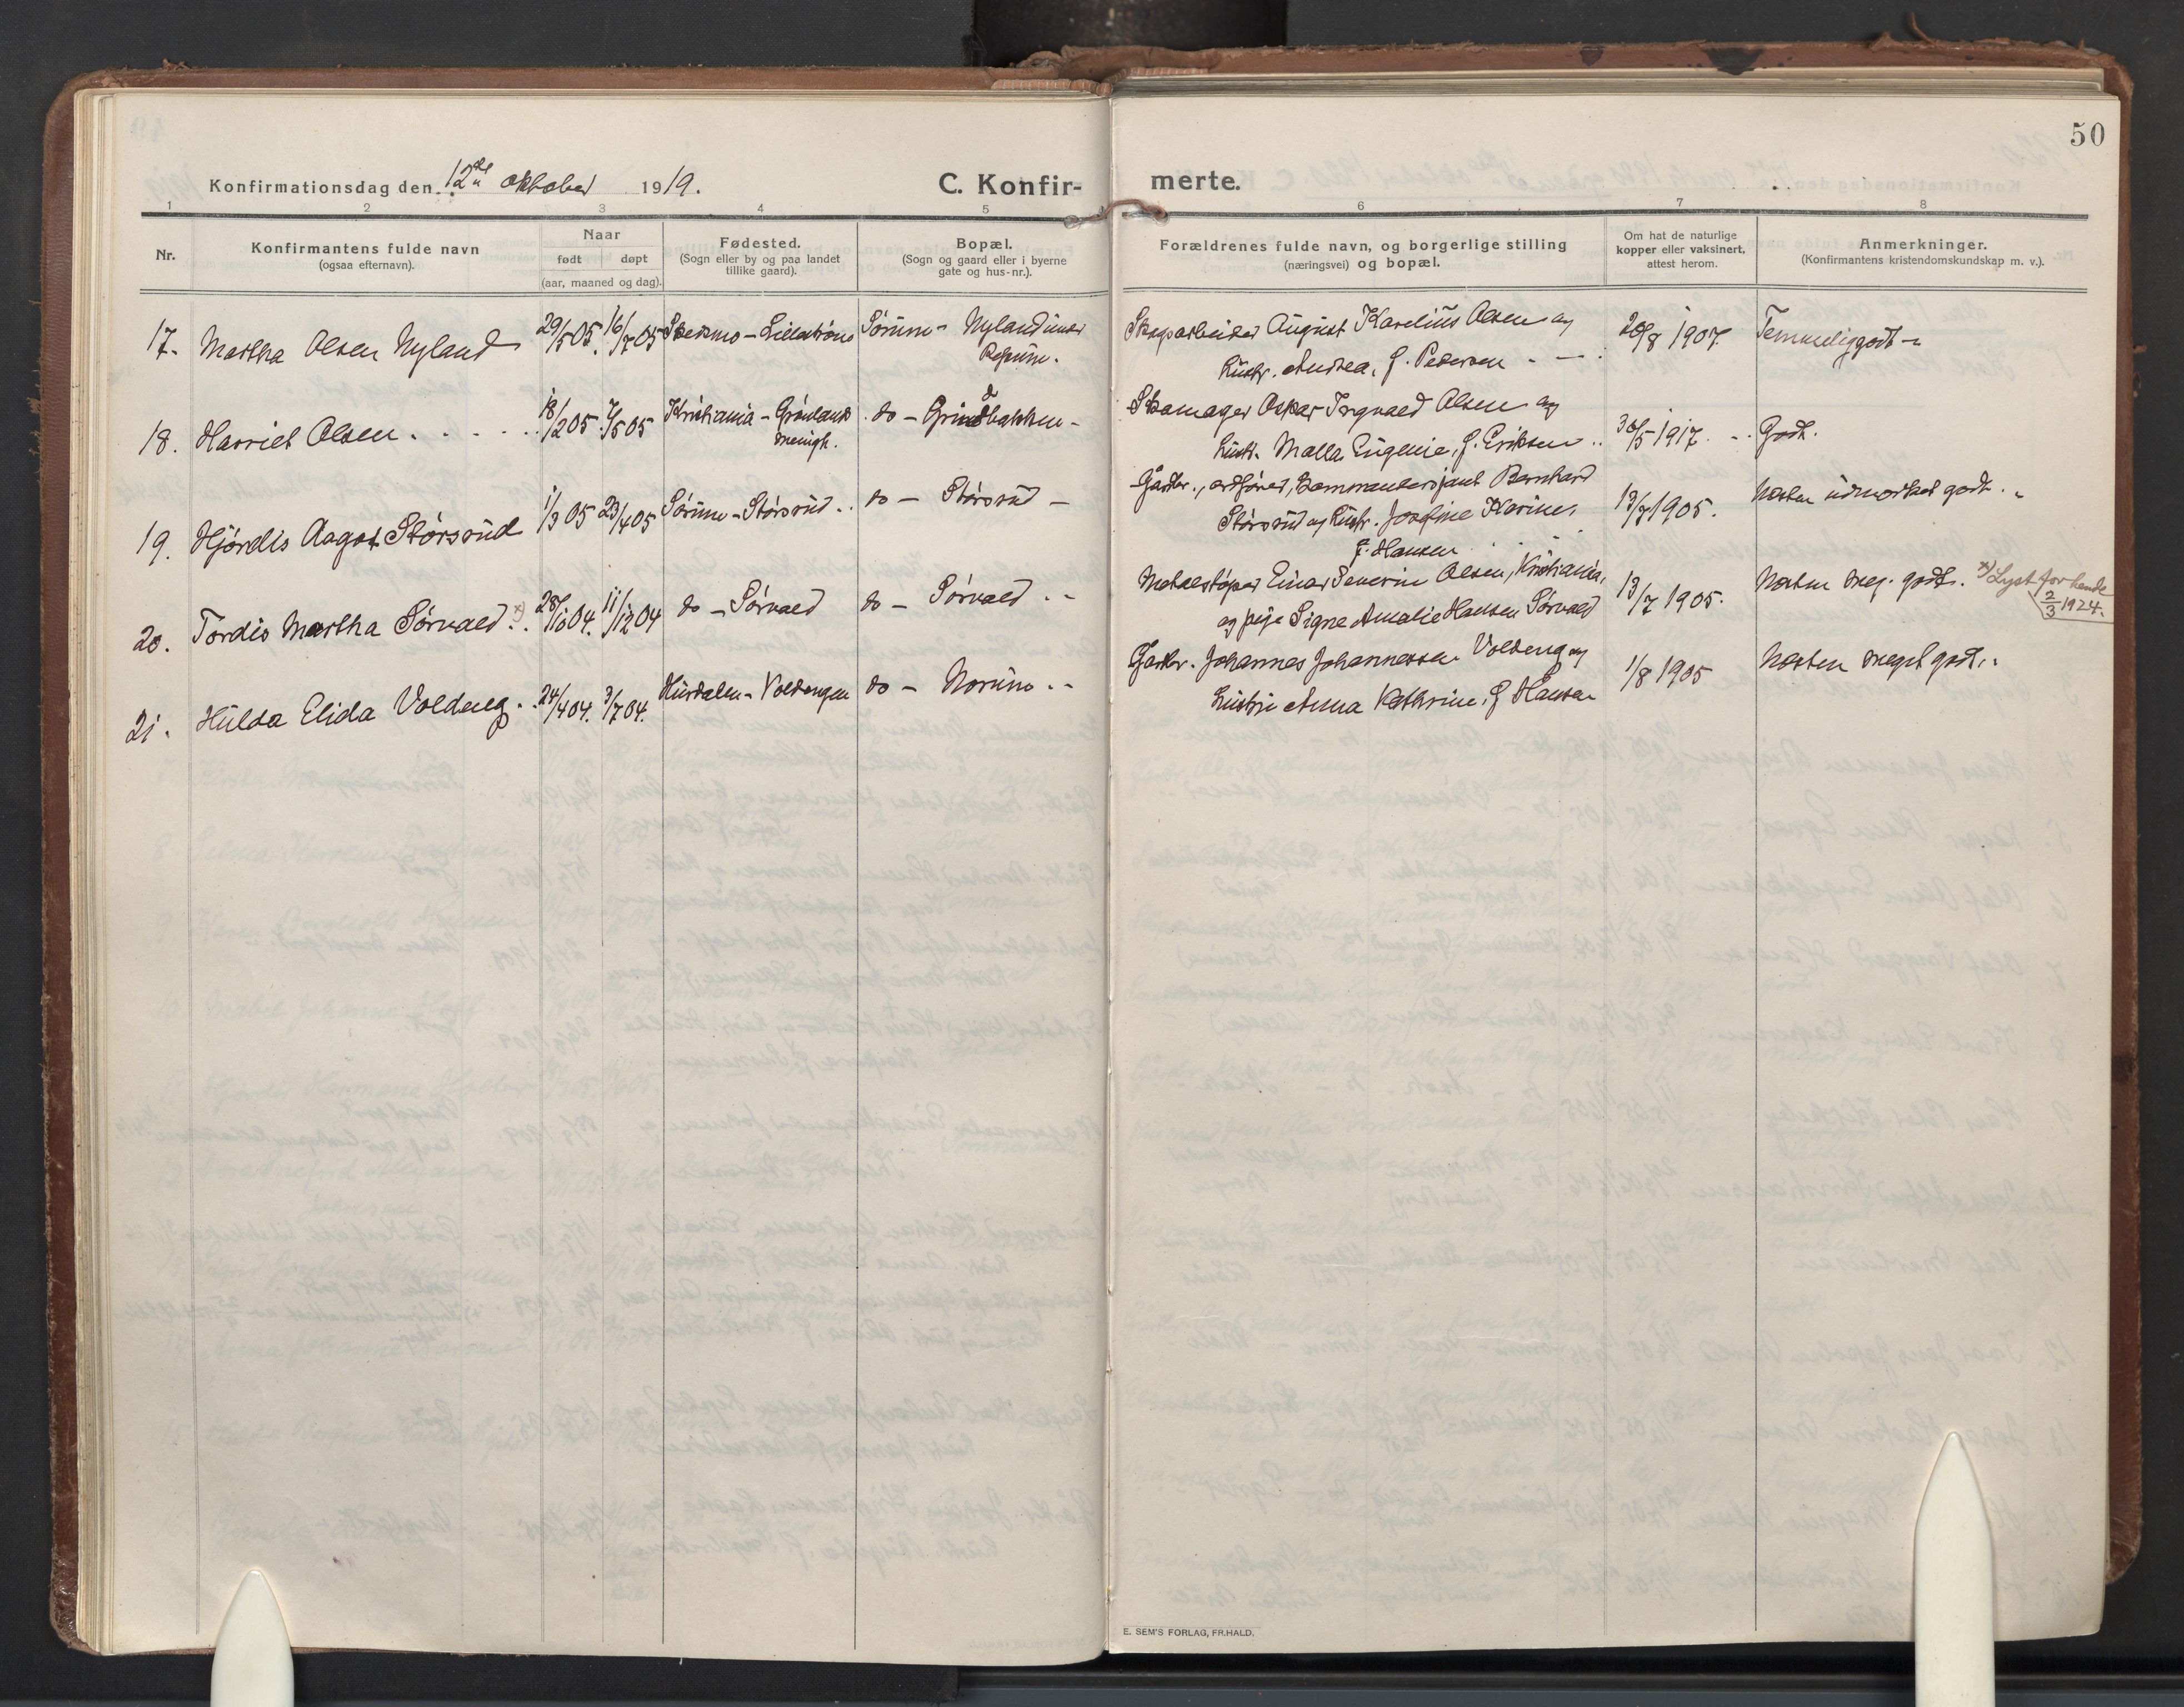 50
Konfirmationsdag den 12te oktober 1919. C. Konfir- merte.
1 2 3 4 5 6 7 8
Nr.
Konfirmantens fulde navn
(ogsaa efternavn).
Naar
født døpt
(aar, maaned og dag).
Fødested.
(Sogn eller by og paa landet
tillike gaard).
Bopæl.
(Sogn og gaard eller i byerne
gate og hus-nr.).
Forældrenes fulde navn, og borgerlige stilling
(næringsvei) og bopæl.
Om hat de naturlige
kopper eller vaksinert,
attest herom.
Anmerkninger.
(Konfirmantens kristendomskundskap m. v.).
17. Martha Olsen Nyland 29/5 05. 16/7 05 Skedsmo - Lillestrøm Sørum - Nyland under
Refsum.
Skogsarbeider August Karelius Olsen og
hustr. Andrea, f. Pedersen 20/8 1907. Temmelig godt
18. Harriet Olsen 18/2 05 7/5 05 Kristiania - Grønlands
menigh. do - Grindbakken -
Skomager Oskar Ingvald Olsen og
hustr. Malla Eugenie, f. Eriksen 30/5 1917. Godt.
19. Hjørdis Aagot Størsrud 1/3 05 23/4 05 Sørum - Størsrud do - Størsrud -
Gaardbr., ordfører, kommandersjant Bernhard
Størsrud og hustr. Josefine Karine,
f. Hansen 13/7 1905. Næsten udmærket godt.
20. Tordis Martha Sørvald x) 28/10 04. 11/12 04 do - Sørvald do - Sørvald
Metalstøper Einar Severin Olsen, Kristiania,
og pige Signe Amalie Hansen Sørvald 13/7 1905. Næsten meg. godt. x) Lyst for hende
2/3 1924.
21. Hulda Elida Voldeng 24/4 04. 3/7 04. Hurdalen - Voldengen do - Norum
Gaardbr. Johannes Johannessen Voldeng og
hustru Anna Kathrine, f Hansen 1/8 1905 Næsten meget godt
E. SEM'S FORLAG, FR.HALD.